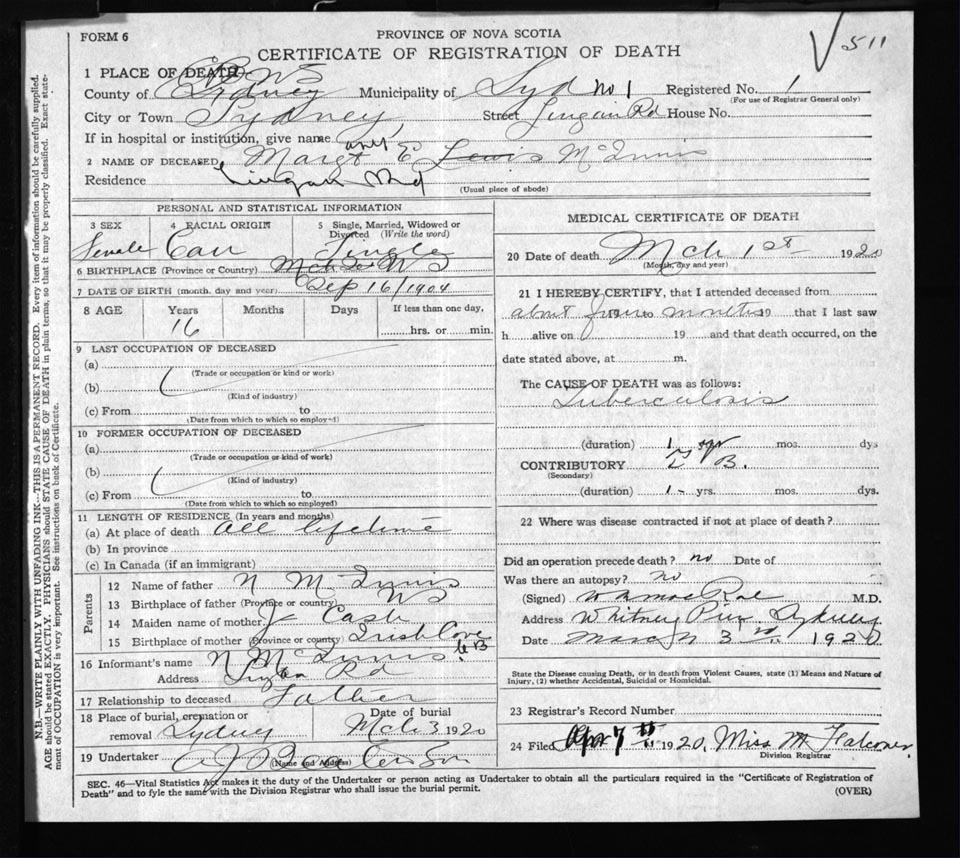 FORM 6
PROVINCE OF NOVA SCOTIA
CERTIFICATE OF REGISTRATION OF DEATH
511
1 PLACE OF DEATH
County of Sydney Municipality of Syd No 1 Registered No. 1
(For use of Registrar General only)
City or Town Sydney Street Lingan Rd House No.
If in hospital or institution, give name
2 NAME OF DECEASED Margt E Lewis McInnis
Residence Lingan Rd
(Usual place of abode)
PERSONAL AND STATISTICAL INFORMATION
3 SEX 4 RACIAL ORIGIN 5 Single, Married, Widowed or Divorced (Write the word)
Female Single
6 BIRTHPLACE (Province or Country) N S
7 DATE OF BIRTH (month, day and year) Sep 16/1904
8 AGE Years Months Days If less than one day,
16 hrs. or min.
9 LAST OCCUPATION OF DECEASED
(a)
(Trade or occupation or kind or work)
(b)
(Kind of industry)
(c) From to
(Date from which to which so employed)
10 FORMER OCCUPATION OF DECEASED
(a)
(Trade or occupation or kind of work)
(b)
(Kind of industry)
(c) From to
(Date from which to which so employed)
11 LENGTH OF RESIDENCE (In years and months)
(a) At place of death all lifetime
(b) In province
(c) In Canada (if an immigrant)
Parents
12 Name of father N McInnis
13 Birthplace of father (Province or country) N S
14 Maiden name of mother J Cash
15 Birthplace of mother (Province or country) Irish Cove C B
16 Informant's name N McInnis
Address Lingan Rd
17 Relationship to deceased Father
18 Place of burial, cremation or removal Sydney Date of burial Mch 3 1920
19 Undertaker & Son
(Name and Address)
MEDICAL CERTIFICATE OF DEATH
20 Date of death Mch 1st 1920
(Month, day and year)
21 I HEREBY CERTIFY, that I attended deceased from
about four months 19 to 19 that I last saw
h alive on 19 and that death occurred, on the
date stated above, at m.
The CAUSE OF DEATH was as follows:
Tuberculosis
(duration) 1 yr mos. dys
CONTRIBUTORY T B.
(Secondary)
(duration) 1 - yrs. mos. dys.
22 Where was disease contracted if not at place of death?
Did an operation precede death? no Date of
Was there an autopsy? no
(Signed) M.D.
Address Whitney Pier, Sydney
Date March 3rd 1920
State the Disease causing Death, or in death from Violent Causes, state (1) Means and Nature of
Injury, (2) whether Accidental, Suicidal or Homicidal.
23 Registrar's Record Number
24 Filed Apr 7th 1920, Miss M Falconer
Division Registrar
SEC. 46—Vital Statistics Act makes it the duty of the Undertaker or person acting as Undertaker to obtain all the particulars required in the "Certificate of Registration of
Death" and to fyle the same with the Division Registrar who shall issue the burial permit.
(OVER)
N.B.—WRITE PLAINLY WITH UNFADING INK—THIS IS A PERMANENT RECORD. Every item of information should be carefully supplied.
AGE should be stated EXACTLY. PHYSICIANS should STATE CAUSE OF DEATH in plain terms, so that it may be properly classified. Exact state-
ment of OCCUPATION is very important. See instructions on back of Certificate.